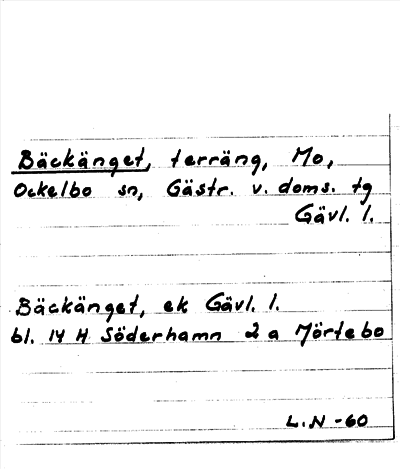 Bäckänget, terräng, Mo,
Ockelbo sn, Gästr. v. doms. tg
Gävl. l.
Bäckänget, ek Gävl. l.
bl. 14 H Söderhamn 2 a Mörtebo
L.N -60